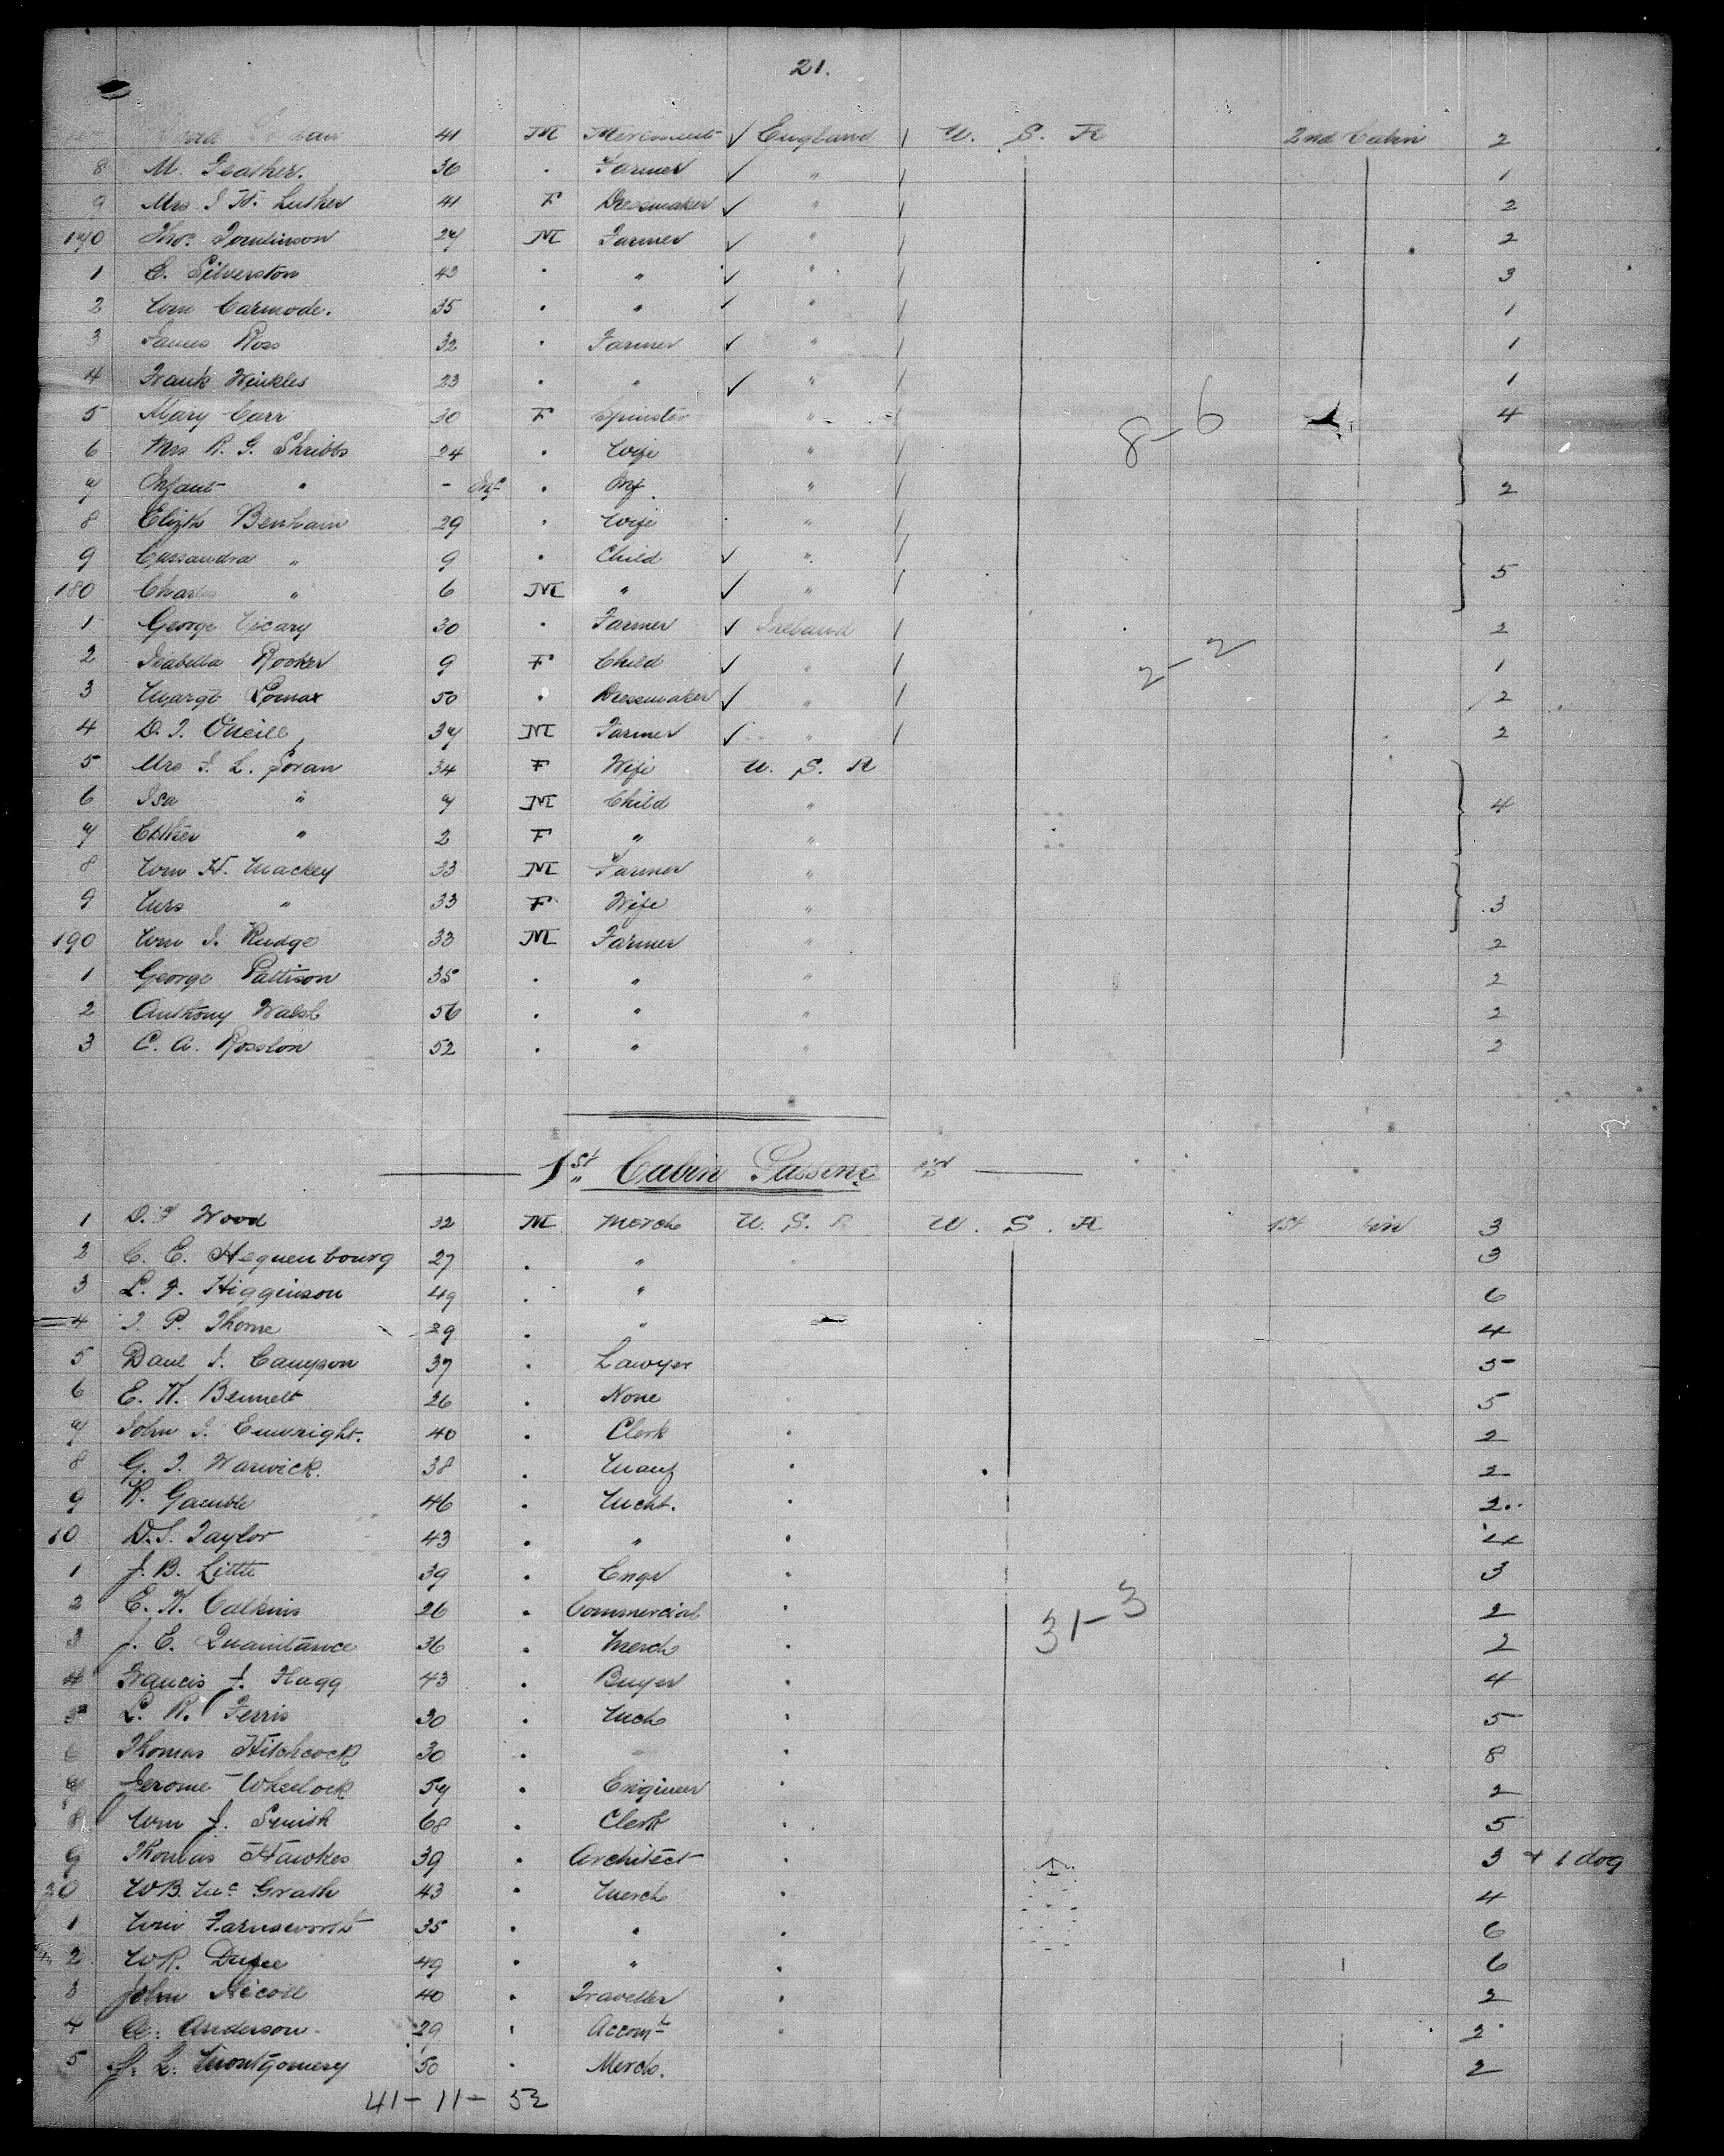 21.
41 M England U. S. A 2nd Cabin 2
8 M. Feather. 36 " Farmer " 1
9 Mrs J H. Luther 41 F Dressmaker " 2
170 Thos. Tomlinson 27 M Farmer " 2
1 E. Silverston 43 " " " 3
2 Wm Carmode. 35 " " " 1
3 James Ross 32 " Farmer " 1
4 Frank Winkles 23 " " " 1
5 Mary Carr 30 F Spinster " 4
8-6
6 Mrs R. G. Shribbs 24 " Wife "
7 Infant " - Inft " Inf. " 2
8 Elizth Benham 29 " Wife "
9 Cassandra " 9 " Child "
180 Charles " 6 M " " 5
1 George Vicary 30 " Farmer Ireland 2
2 Isabella Rooker 9 F Child " 1
2-2
3 Margt Lomax 50 " Dressmaker " 2
4 D. J. O'Neill 37 M Farmer " 2
5 Mrs J. L. Soran 34 F Wife U. S. A
6 Isa " 7 M Child " 4
7 Esther " 2 F " "
8 Wm H. Mackey 33 M Farmer "
9 Mrs " 33 F Wife " 3
190 Wm J. Rudge 33 M Farmer " 2
1 George Pattison 35 " " " 2
2 Anthony Walsh 56 " " " 2
3 C. A. Rosslon 52 " " " 2
1st Cabin
1 D. F Wood 32 M Merch U. S. A U. S. A 1st 3
2 C. E. Hequenbourg 27 " " 3
3 L. J. Higginson 49 " " 6
4 J. P. Thorne 29 " " 4
5 Danl J. Campson 37 " Lawyer 5
6 E. K. Bennett 26 " None 5
7 John J. Enwright. 40 " Clerk " 2
8 G. J. Warwick. 38 " Manf " 2
9 R. Gamble 46 " Mcht. " 2
10 D. S. Taylor 43 " " " 4
1 J. B. Little 39 " Engr " 3
2 E. K. Calkins 26 " Commercial " 2
31-3
3 J. E. Quaintance 36 " Merch " 2
4 Francis J. Flagg 43 " Buyer " 4
5 L. R. Ferris 30 " Mch " 5
6 Thomas Hitchcock 30 " " " 8
7 Jerome Wheelock 54 " Engineer " 2
8 Wm J. Smith 68 " Clerk " 5
9 Thomas Hawkes 39 " Architect " 3 + 1 dog
20 W B. Mc Grath 43 " Merch " 4
1 Wm Farnsworth 35 " " " 6
2 W R. Dupee 49 " " " 6
3 John Nicoll 40 " Traveller " 2
4 A. Anderson 29 " Accomt " 2
5 J. L. Montgomery 50 " Merch. 2
41-11-52